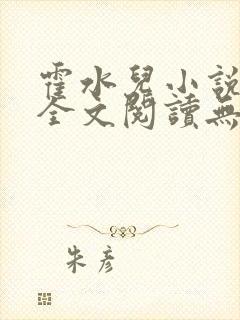 霍水兒小說
全文閱讀無
朱彥